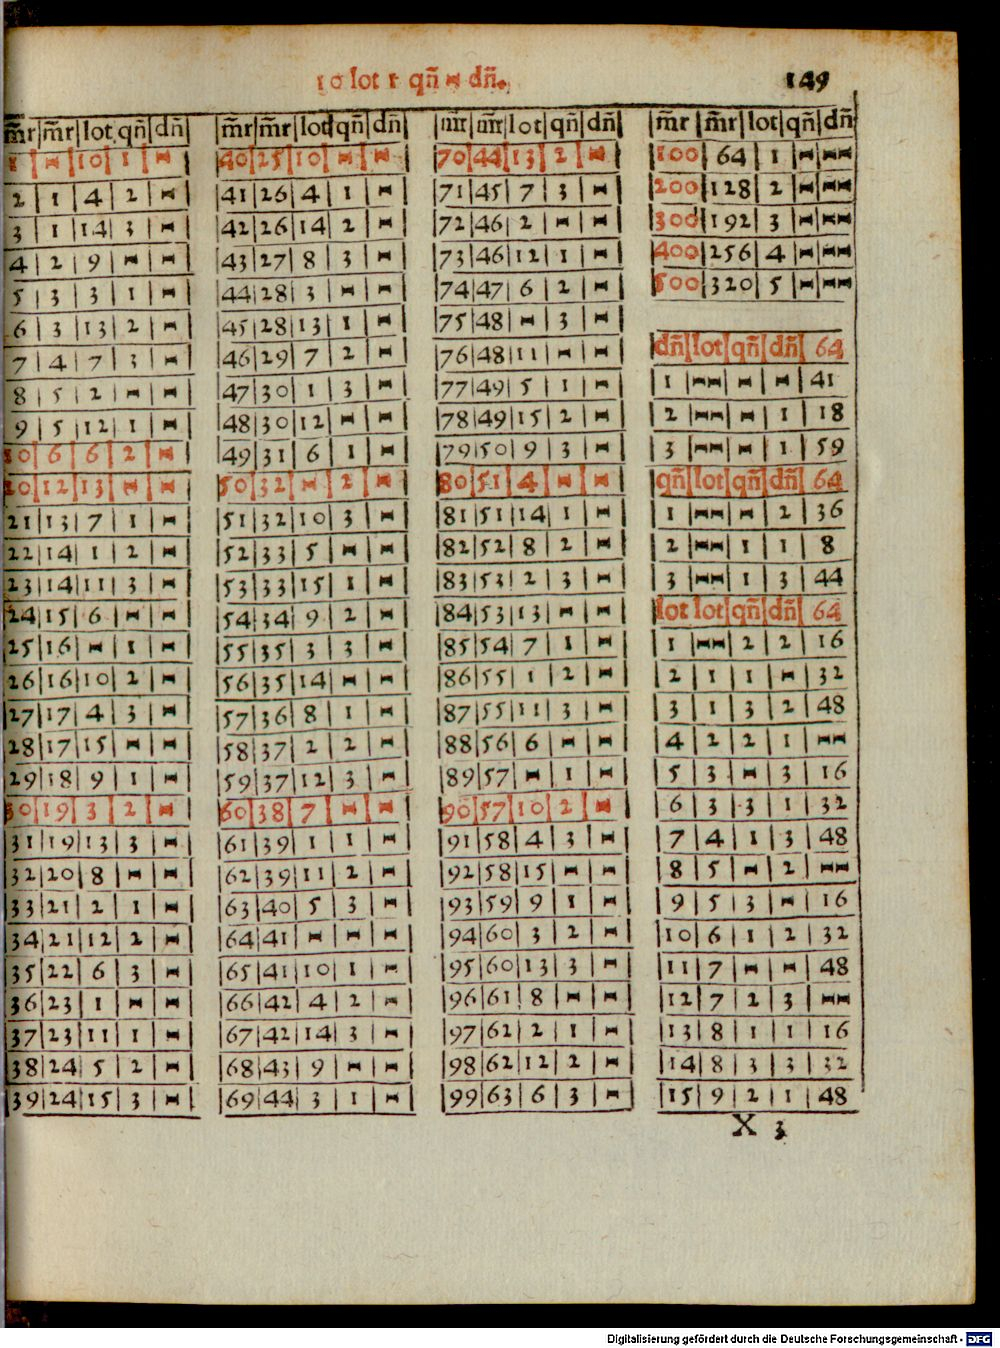 10 lot 1 qñ ⋈ dñ.
149
m̃r|m̃r|lot|qñ|dñ
1|⋈|10|1|⋈
2|1|4|2|⋈
3|1|14|3|⋈
4|2|9|⋈|⋈
5|3|3|1|⋈
6|3|13|2|⋈
7|4|7|3|⋈
8|5|2|⋈|⋈
9|5|12|1|⋈
10|6|6|2|⋈
20|12|13|⋈|⋈
21|13|7|1|⋈
22|14|1|2|⋈
23|14|11|3|⋈
24|15|6|⋈|⋈
25|16|⋈|1|⋈
26|16|10|2|⋈
27|17|4|3|⋈
28|17|15|⋈|⋈
29|18|9|1|⋈
30|19|3|2|⋈
31|19|13|3|⋈
32|20|8|⋈|⋈
33|21|2|1|⋈
34|21|12|2|⋈
35|22|6|3|⋈
36|23|1|⋈|⋈
37|23|11|1|⋈
38|24|5|2|⋈
39|24|15|3|⋈
m̃r|m̃r|lot|qñ|dñ
40|25|10|⋈|⋈
41|26|4|1|⋈
42|26|14|2|⋈
43|27|8|3|⋈
44|28|3|⋈|⋈
45|28|13|1|⋈
46|29|7|2|⋈
47|30|1|3|⋈
48|30|12|⋈|⋈
49|31|6|1|⋈
50|32|⋈|2|⋈
51|32|10|3|⋈
52|33|5|⋈|⋈
53|33|15|1|⋈
54|34|9|2|⋈
55|35|3|3|⋈
56|35|14|⋈|⋈
57|36|8|1|⋈
58|37|2|2|⋈
59|37|12|3|⋈
60|38|7|⋈|⋈
61|39|1|1|⋈
62|39|11|2|⋈
63|40|5|3|⋈
64|41|⋈|⋈|⋈
65|41|10|1|⋈
66|42|4|2|⋈
67|42|14|3|⋈
68|43|9|⋈|⋈
69|44|3|1|⋈
m̃r|m̃r|lot|qñ|dñ
70|44|13|2|⋈
71|45|7|3|⋈
72|46|2|⋈|⋈
73|46|12|1|⋈
74|47|6|2|⋈
75|48|⋈|3|⋈
76|48|11|⋈|⋈
77|49|5|1|⋈
78|49|15|2|⋈
79|50|9|3|⋈
80|51|4|⋈|⋈
81|51|14|1|⋈
82|52|8|2|⋈
83|53|2|3|⋈
84|53|13|⋈|⋈
85|54|7|1|⋈
86|55|1|2|⋈
87|55|11|3|⋈
88|56|6|⋈|⋈
89|57|⋈|1|⋈
90|57|10|2|⋈
91|58|4|3|⋈
92|58|15|⋈|⋈
93|59|9|1|⋈
94|60|3|2|⋈
95|60|13|3|⋈
96|61|8|⋈|⋈
97|62|2|1|⋈
98|62|12|2|⋈
99|63|6|3|⋈
m̃r|m̃r|lot|qñ|dñ
100|64|1|⋈|⋈⋈
200|128|2|⋈|⋈⋈
300|192|3|⋈|⋈⋈
400|256|4|⋈|⋈⋈
500|320|5|⋈|⋈⋈
dñ|lot|qñ|dñ|64
1|⋈⋈|⋈|⋈|41
2|⋈⋈|⋈|1|18
3|⋈⋈|⋈|1|59
qñ|lot|qñ|dñ|64
1|⋈⋈|⋈|2|36
2|⋈⋈|1|1|8
3|⋈⋈|1|3|44
lot|lot|qñ|dñ|64
1|⋈⋈|2|2|16
2|1|1|⋈|32
3|1|3|2|48
4|2|2|1|⋈⋈
5|3|⋈|3|16
6|3|3|1|32
7|4|1|3|48
8|5|⋈|2|⋈⋈
9|5|3|⋈|16
10|6|1|2|32
11|7|⋈|⋈|48
12|7|2|3|⋈⋈
13|8|1|1|16
14|8|3|3|32
15|9|2|1|48
X 3
Digitalisierung gefördert durch die Deutsche Forschungsgemeinschaft - DFG